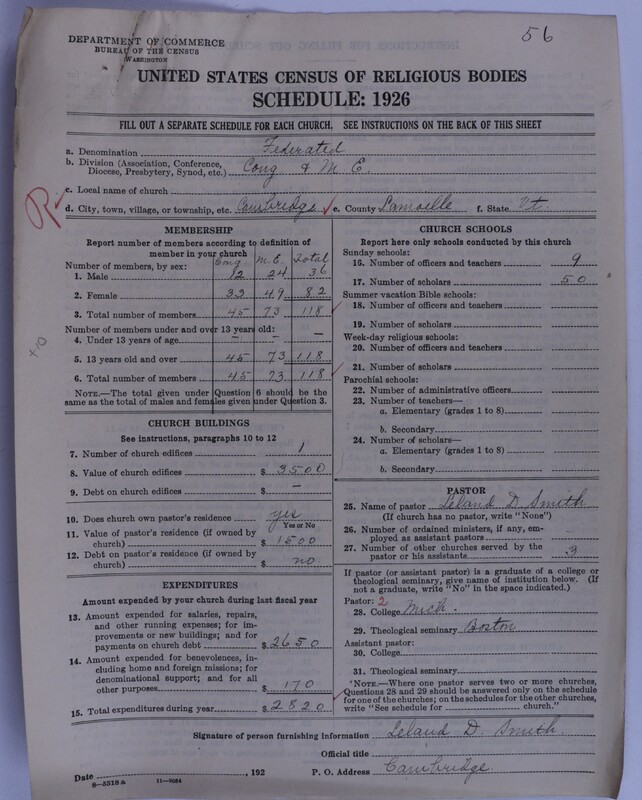 56
DEPARTMENT OF COMMERCE
BUREAU OF THE CENSUS
WASHINGTON
UNITED STATES CENSUS OF RELIGIOUS BODIES
SCHEDULE: 1926
FILL OUT A SEPARATE SCHEDULE FOR EACH CHURCH. SEE INSTRUCTIONS ON THE BACK OF THIS SHEET
a. Denomination Federated
b. Division (Association, Conference,
Diocese, Presbytery, Synod, etc.) Cong & M. E.
c. Local name of church
d. City, town, village, or township, etc. Cambridge e. County Lamoille f. State Vt.
MEMBERSHIP
Report number of members according to definition of
member in your church
Cong M.E. Total
Number of members, by sex:
1. Male 12 24 36
2. Female 33 49 82
3. Total number of members 45 73 118
Number of members under and over 13 years old:
4. Under 13 years of age – – –
5. 13 years old and over 45 73 118
6. Total number of members 45 73 118
NOTE.—The total given under Question 6 should be
same as the total of males and females given under Question 3.
CHURCH BUILDINGS
See instructions, paragraphs 10 to 12
7. Number of church edifices 1
8. Value of church edifices $ 3500
9. Debt on church edifices $ –
10. Does church own pastor's residence yes
Yes or No
11. Value of pastor's residence (if owned by
church) $ 1500
12. Debt on pastor's residence (if owned by
church) $ no
EXPENDITURES
Amount expended by your church during last fiscal year
13. Amount expended for salaries, repairs,
and other running expenses; for im-
provements or new buildings; and for
payments on church debt $ 2650
14. Amount expended for benevolences, in-
cluding home and foreign missions; for
denominational support; and for all
other purposes $ 170
15. Total expenditures during year $ 2820
CHURCH SCHOOLS
Report here only schools conducted by this church
Sunday schools:
16. Number of officers and teachers 9
17. Number of scholars 50
Summer vacation Bible schools:
18. Number of officers and teachers
19. Number of scholars
Week-day religious schools:
20. Number of officers and teachers
21. Number of scholars
Parochial schools:
22. Number of administrative officers
23. Number of teachers—
a. Elementary (grades 1 to 8)
b. Secondary
24. Number of scholars—
a. Elementary (grades 1 to 8)
b. Secondary
PASTOR
25. Name of pastor Leland D. Smith
(If church has no pastor, write "None")
26. Number of ordained ministers, if any, em-
ployed as assistant pastors
27. Number of other churches served by the
pastor or his assistants 3
If pastor (or assistant pastor) is a graduate of a college or
theological seminary, give name of institution below. (If
not a graduate, write "No" in the space indicated.)
Pastor: 2
28. College Mich.
29. Theological seminary Boston
Assistant pastor:
30. College
31. Theological seminary
NOTE.—Where one pastor serves two or more churches,
Questions 28 and 29 should be answered only on the schedule
for one of the churches; on the schedules for the other churches,
write "See schedule for church."
Signature of person furnishing information Leland D. Smith
Official title
Date , 192 P. O. Address Cambridge
8-5518a 11-9084